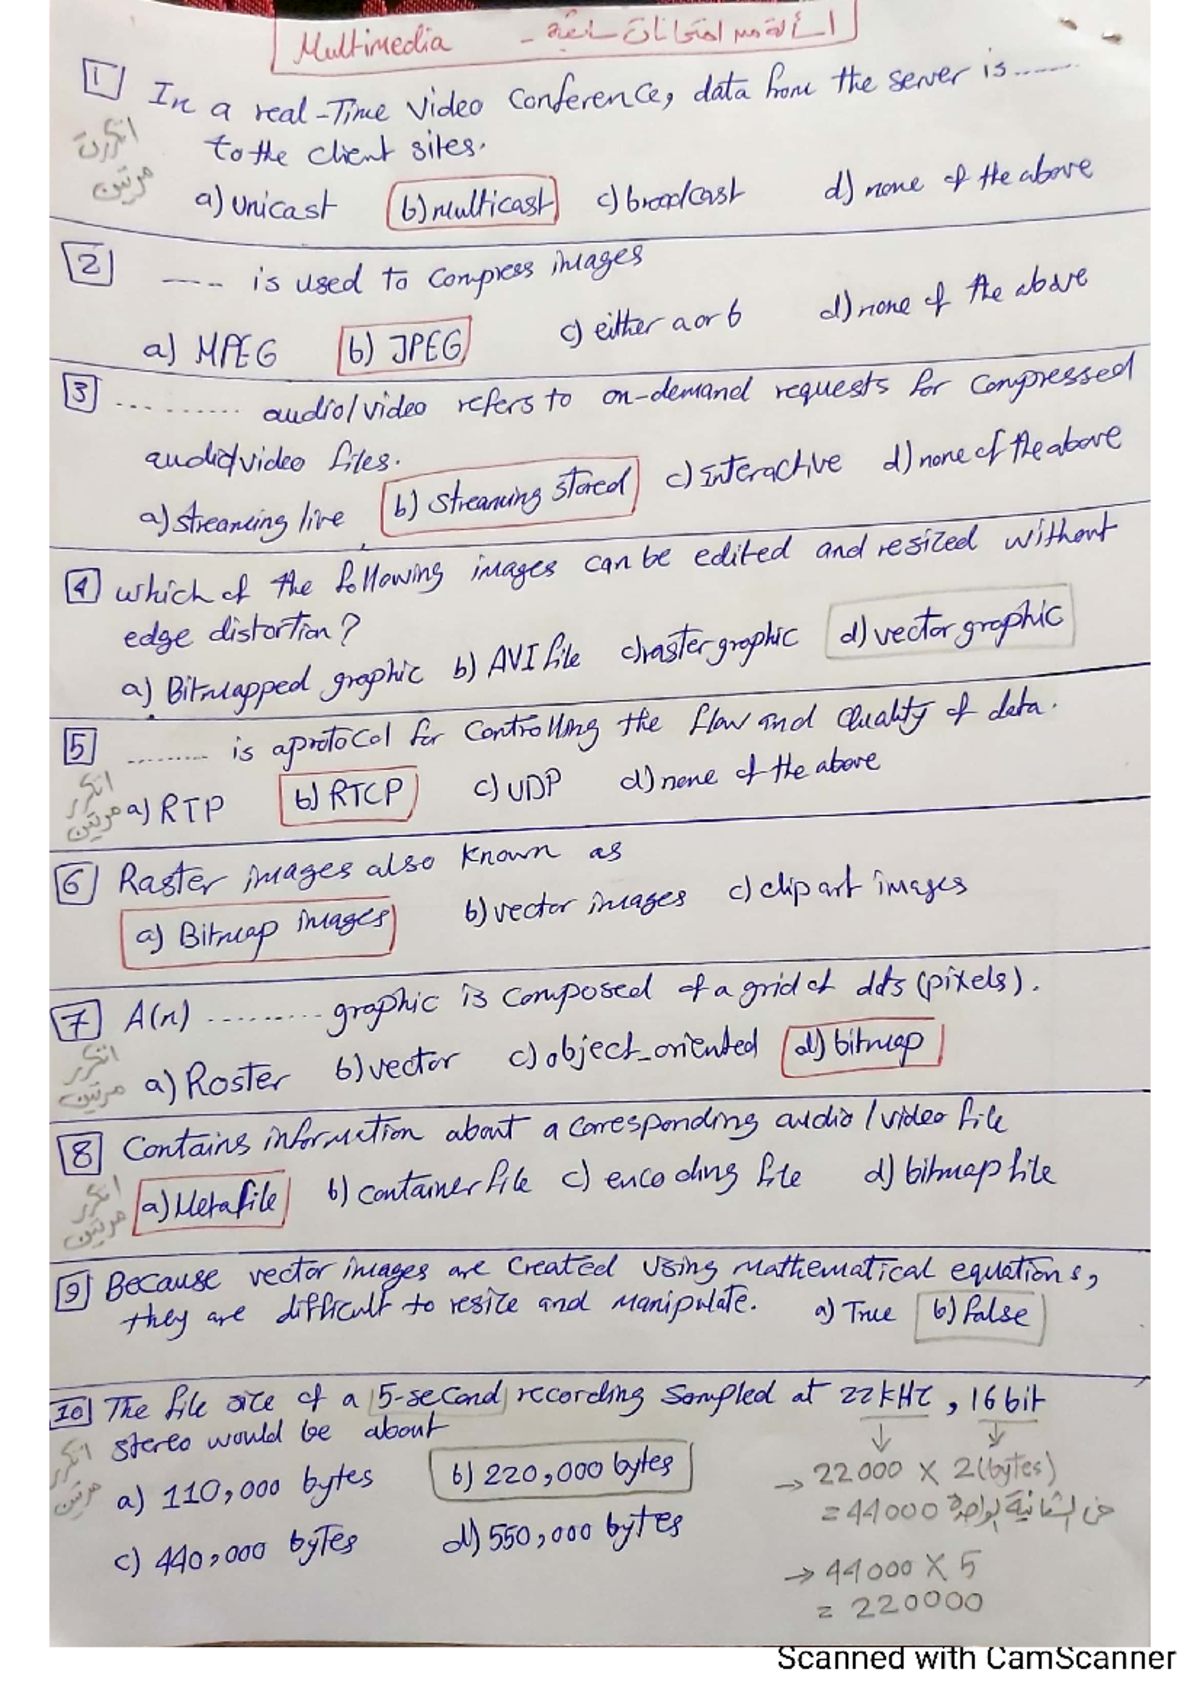 Multimedia - أسئلة من امتحانات سابقة
1 In a real-Time video conference, data from the server is ........
اتكررت مرتين
to the client sites.
a) unicast b) multicast c) broadcast d) none of the above
2 ----- is used to compress images
a) MPEG b) JPEG c) either a or b d) none of the above
3 ........... audio/video refers to on-demand requests for compressed
audio/video files.
a) streaming live b) streaming stored c) Interactive d) none of the above
4 which of the following images can be edited and resized without
edge distortion?
a) Bitmapped graphic b) AVI file c) raster graphic d) vector graphic
5 ......... is a protocol for controlling the flow and Quality of data.
اتكرر مرتين
a) RTP b) RTCP c) UDP d) none of the above
6 Raster images also known as
a) Bitmap images b) vector images c) clip art images
7 A(n) .......... graphic is composed of a grid of dots (pixels).
اتكرر مرتين
a) Roster b) vector c) object_oriented d) bitmap
8 Contains information about a corresponding audio/video file
اتكرر مرتين
a) Metafile b) container file c) encoding file d) bitmap file
9 Because vector images are created using mathematical equations,
they are difficult to resize and manipulate. a) True b) false
10 The file size of a 5-second recording sampled at 22kHz, 16 bit
اتكرر مرتين
stereo would be about
a) 110,000 bytes b) 220,000 bytes
c) 440,000 bytes d) 550,000 bytes
→ 22000 X 2 (bytes)
= 44000 في الثانية الواحدة
→ 44000 X 5
= 220000
Scanned with CamScanner